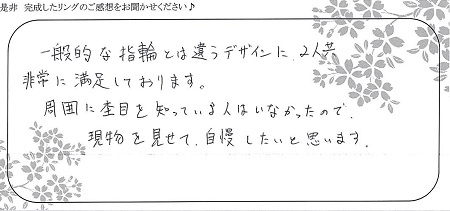 是非 完成したリングのご感想をお聞かせください♪
一般的な指輪とは違うデザインに、2人共
非常に満足しております。
周囲に杢目を知っている人はいなかったので、
現物を見せて、自慢したいと思います。